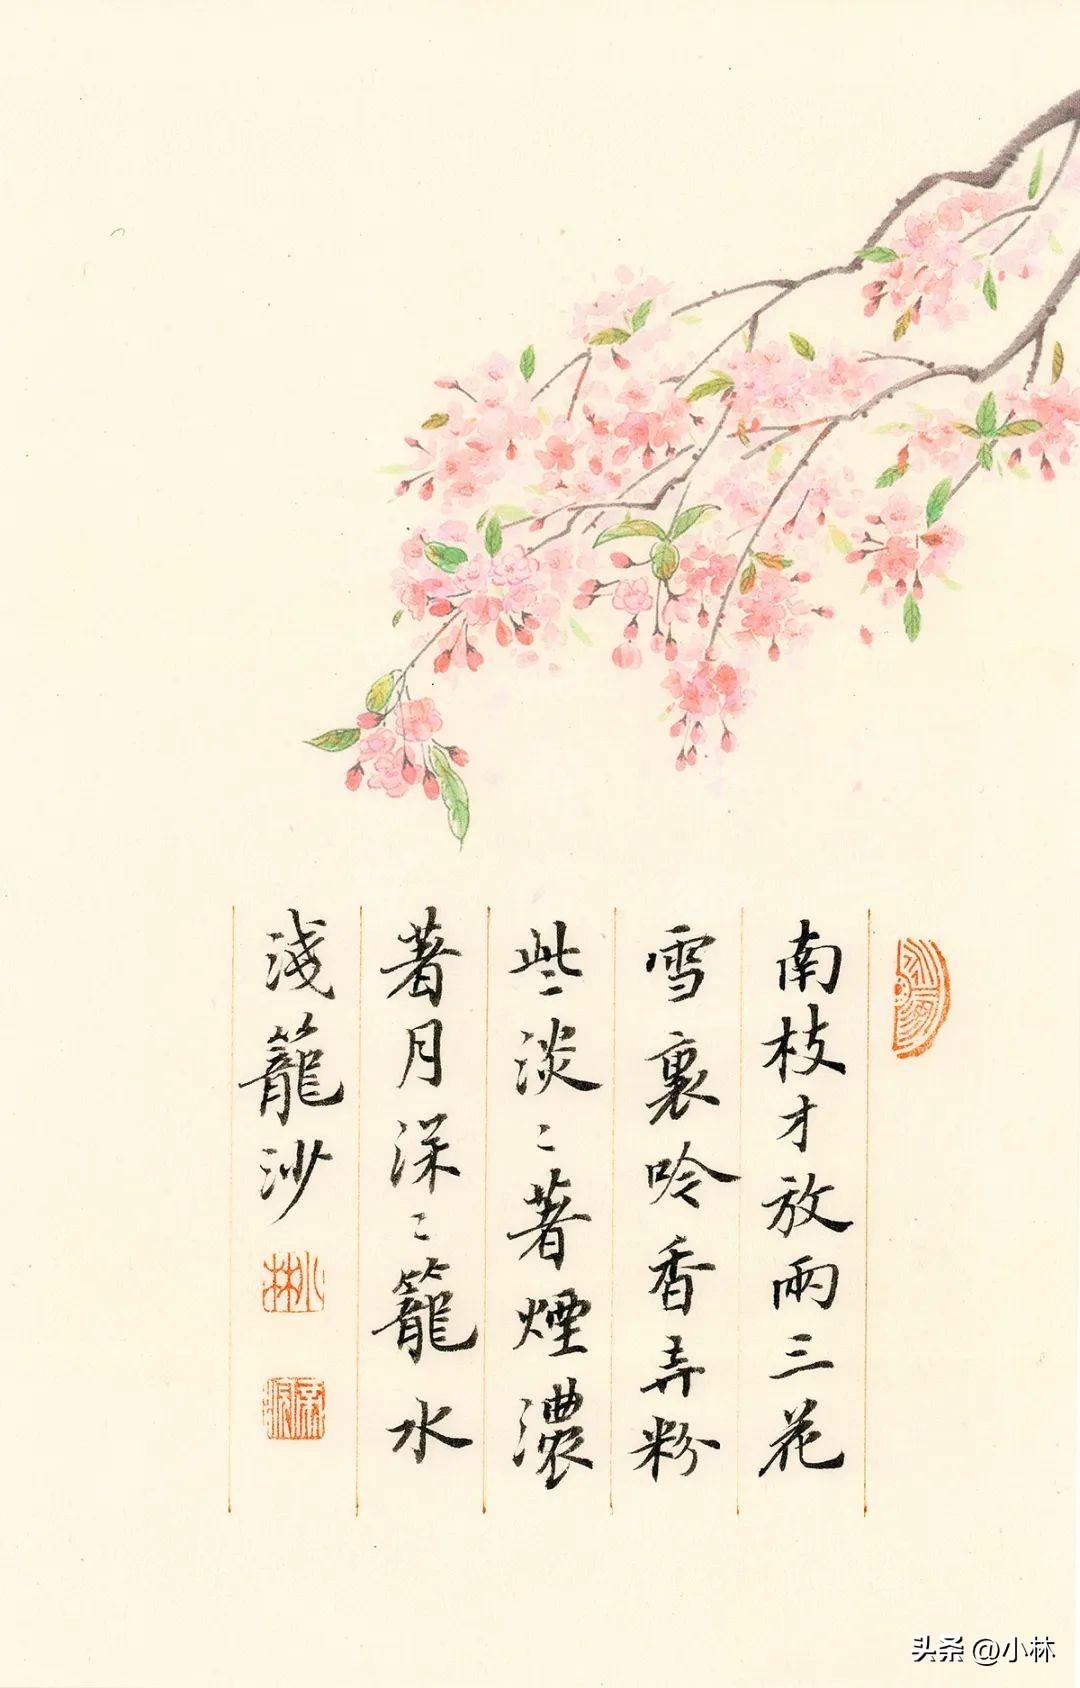 南枝才放兩三花
雪裏吟香弄粉
些淡〻著煙濃
著月深〻籠水
淺籠沙
小林
头条 @小林